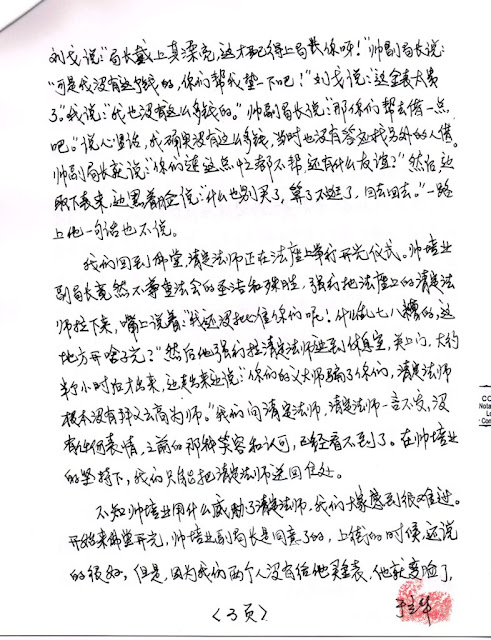 刘戈说："局长戴上真漂亮，这才配得上局长你呀！"帅副局长说：
"可是我没有这多钱的，你们帮我垫一下吧！"刘戈说："这金表太贵
了"我说："我也没有这么多钱的。"帅副局长说："那你们帮去借一点
吧。"说心里话，我确实没有这么多钱，当时也没有答应找另外的人借。
帅副局长就说："你们连这点忙都不帮，还有什么友谊？"然后，边
取下表来，边黑着脸说："什么也别买了，算了不逛了，回去回去。"一路
上他一句话也不说。
我们回到佛堂，清定法师正在法座上举行开光仪式。帅培业
副局长竟然不尊重法会的圣洁和殊胜，强行把法座上的清定法
师拉下来，嘴上说着："我还没批准你们呢！什么乱七八糟的，这
地方开啥子光？"然后他强行拉清定法师进到休息室，关上门，大约
半个小时后才出来，边走出来边说："你们的义大师骗了你们，清定法师
根本没有拜义云高为师。"我们问清定法师，清定法师一言不发，没
有任何表情，之前的那种笑容和认可，已经看不到了。在帅培业
的坚持下，我们只能把清定法师送回住处。
不知帅培业用什么威胁了清定法师，我们大家感到很难过。
开始来佛堂开光，帅培业副局长是同意了的，上街的时候，还说
的很好，但是，因为我们两个人没有给他买金表，他就变脸了，
〈3页〉
CO
Nota
Lo
Com